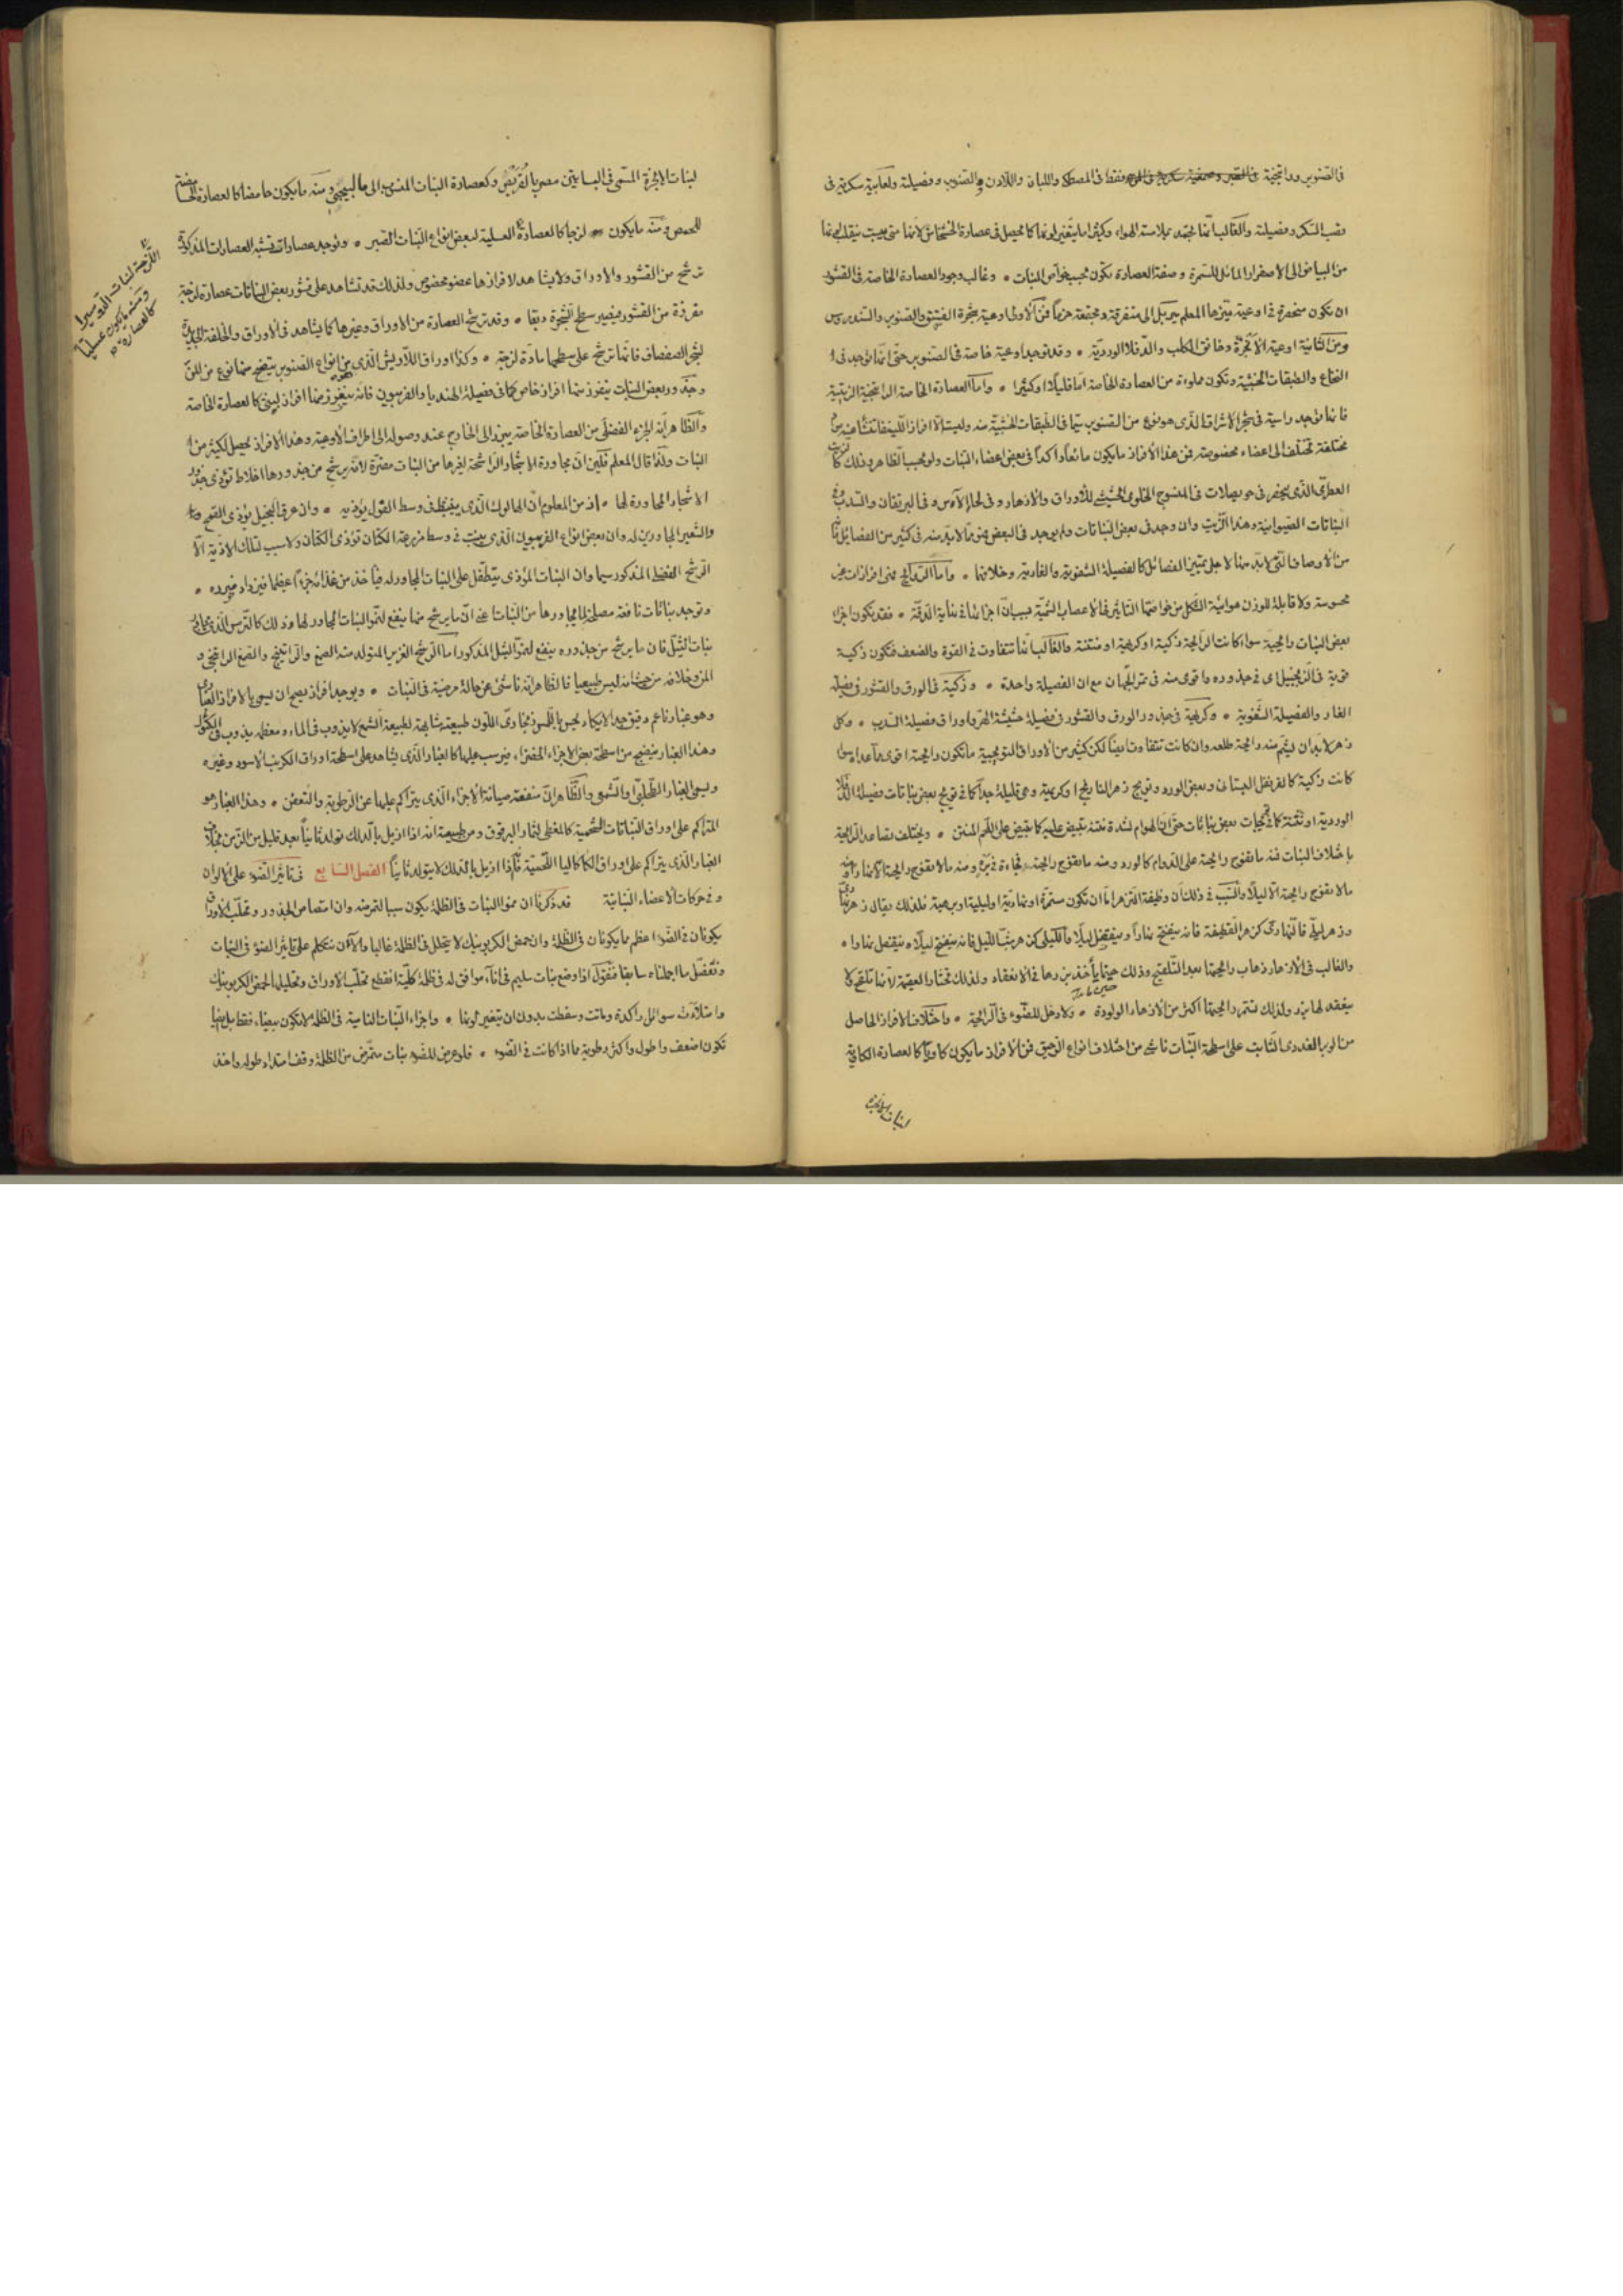 فى الصنوبر وراتنجية فقط فى المصطكى واللبان واللادن والصنوبر وفصيلته ولعابية سكرية فى
قصب السكر وفصيلته والغالب انها تجمد بملامسة الهواء وكثيرا ما يتغير لونها كما يحصل فى عصارة الخشخاش لانها متى يبست ينقلب لونها
من البياض الى الاصفرار المائل للسمرة وصفة العصارة تكون بحسب خواص النبات وغالب وجود العصارة الخاصة فى القشور
ان تكون منحصرة فى اوعية ميزها المعلم ميربل الى متفرقة ومجتمعة حزما فمن الأولى اوعية شجرة الفستق والصنوبر
ومن الثانية اوعية الأنجرة وخانق الكلب والدفلا الوردية وقد توجد اوعية خاصة فى الصنوبر حتى انها توجد فى
النخاع والطبقات الخشبية وتكون مملوءة من العصارة الخاصة اما قليلا او كثيرا واما العصارة الخاصة الراتنجية الزيتية
فانها توجد راسية فى شجر الاشراق الذى هو نوع من الصنوبر سيما فى الطبقات الخشبية منه
مختلفة تختلف الى اعضاء مخصوصة فمن هذا الأفراز ما يكون مائعا واكدا فى بعض اعضاء النبات ولو بحسب الظاهر وذلك
العطرى الذى ينحفر فى حويصلات فى المنسوج الخلوى الحشيشى للأوراق والأزهار وفى لحاء الآس وفى البرتقان والسدب
النباتات الصيوانية وهذا الزيت وان وجد فى بعض النباتات ولم يوجد فى البعض فهو مما لابد منه فى كثير من الفصائل
من الأوصاف التى لابد منها لاجل تمييز الفصائل كالفصيلة الشفوية والغارية وخلافهما واما الروائح فهى افرازات غير
محسوسة ولا قابلة للوزن هوائية الشكل من خواصها التأثير فى الأعصاب الشمية بسبب ان اجزائها فى نهاية الدقة فقد يكون اجزاء
بعض النبات رائحية سواء كانت الرائحة ذكية او كريهة او منتنة والغالب انها تتفاوت فى القوة والضعف فتكون ذكية
قوية فى الزنجبيل اى فى جذوره واقوى منه فى ثمر الحمان مع ان الفصيلة واحدة وذكية فى الورق والقشور فى فصيلة
الغار والفصيلة الشفوية وكريهة فى جذور الورق والقشور فى فصيلة حشيشة الهر واوراق فصيلة السدب وكل
زهر لابد ان يشم منه رائحة طلعه وان كانت تتفاوت ايضا لكن كثير من الأوراق التويجية ما تكون رائحته اقوى مما عداه سوا
كانت ذكية كالقرنفل البستانى وبعض الورد وتويج زهر النارنج او كريهة وهى قليلة جدا كما فى تويج بعض نباتات فصيلة الدفلا
الوردية او نتنة كما فى تويجيات بعض نباتات حتى ان الهوام لشدة نتنه تبيض عليه كما تبيض على اللحم المنتن ويختلف تصاعد الرائحة
باختلاف النبات فمنه ما تفوح رايحته على الدوام كالورد ومنه ما تفوح رايحته فجاءة فى مرة ومنه ما لا تفوح رايحته الا نهارا ومنه
ما لا تفوح رايحته الا ليلا والسبب فى ذلك ان وظيفة الزهر اما ان تكون مستمرة او نهارية او ليلية او برهية فلذلك يقال زهر نهارى
وزهر ليلى فالنهارى كزهر القطيفة فانه ينفتح نهارا وينقفل ليلا والليلى كزهر شب الليل فانه ينفتح ليلا وينقفل نهارا
والغالب فى الأزهار ذهاب رائحتها بعد التلقيح وذلك حينما يأخذ بزرها فى الانعقاد ولذلك تختار العقيمة لأنها تلقح كما
ينعقد لها بزر ولذلك تستمر رائحتها اكثر من الأزهار الولودة ولا دخل للضوء فى الرائحة واختلاف الافراز الحاصل
من الوبر الغددى النابت على اسطحة النبات ناشى من اختلاف انواع الزحيق فمن الأفراز ما يكون كاويا كالعصارة الكاوية
لنبات الانجرة
لنبات الأنجرة المسمى فى البساتين مصريا بالقريص وكعصارة النبات المنسوب الى مالبيجى ومنه ما يكون حامضا كالعصارة الحامضة
للحمص ومنه ما يكون لزجا كالعصارة العسلية لبعض انواع النبات الصبر وتوجد عصارات تشبه العصارات المذكورة
اللزجة لنبات الدروسيرا
ومنه ما يكون عسليا
كالعصارة
ترشح من القشور والاوراق ولا يشاهد لافرازها عضو مخصوص ولذلك قد تشاهد على قشور بعض النباتات عصارة لزجة
مفرزة من القشور فيصير سطح الشجرة دبقا وقد ترشح العصارة من الاوراق وغيرها كما يشاهد فى الأوراق والخلفة الجديدة
لشجر الصفصاف فانها ترشح على سطحها مادة لزجة وكذا اوراق اللاريش الذى هو من انواع الصنوبر ينضح منها نوع من المن
وجذور بعض النبات يتفرز منها افراز خاص كما فى فصيلة الهندبا والفربيون فانه يتفرز منها افراز لبنى كالعصارة الخاصة
والظاهر انه الجزء الفضلى من العصارة الخاصة يبرز الى الخارج عند وصوله الى اطراف الأوعية وهذا الافراز يحصل لكثير من
النبات ولذا قال المعلم ان مجاورة الاشجار الراشحة لغيرها من النبات مضرة لانه يرشح من جذورها اخلاط تؤذى جذور
الاشجار المجاورة لها اذ من المعلوم ان الهالوك الذى ينبت فى وسط الفول يؤذيه وان عرق النجيل يؤذى القمح
والشعير المجاورين له وان بعض انواع الفربيون الذى ينبت فى وسط مزرعة الكتان تؤذى الكتان ولا سبب لتلك الاذية الا
الرشح الفضلى المذكور سيما وان النبات المؤذى يتطفل على النبات المجاور له فيأخذ من غذائه جزءا عظيما فيزداد ضرره
وتوجد نباتات نافعة مصلحة لما يجاورها من النبات اعنى ان ما يرشح منها ينفع لنمو النبات المجاور لها وذلك كالترمس الذى يجاور
نبات التيل فان ما يرشح من جذوره ينفع لنمو التيل المذكور اما الرشح الغزير المتولد منه الصمغ والراتينج والصمغ الراتنجى و
المن وخلافه من حيث انه ليس طبيعيا فالظاهر انه ناشئ عن حالة مرضية فى النبات ويوجد افراز يصح ان يسمى بالافراز الغبارى
وهو غبار ناعم رقيق جدا لا يكاد يحس باللمس زنجارى اللون طبيعته مشابهة لطبيعة الشمع لا يذوب فى الماء ومعظمه يذوب فى الكؤول
وهذا الغبار ينضح من اسطحة بعض الاجزاء الخضراء فيرسب عليها كالغبار الذى يشاهد على اسطحة اوراق الكرنب الأسود وغيره
ويسمى الغبار الطحلبى والشمعى والظاهر ان منفعته صيانة الأجزاء الذى يتراكم عليها عن الرطوبة والتعفن وهذا الغبار هو
المتراكم على اوراق النباتات الشحمية كالمغطى لثمار البرقوق ومن طبيعته انه اذا ازيل بالدلك تولد ثانيا بعد قليل من الزمن بخلاف
الغبار الذى يتراكم على اوراق الكاكاليا اللحمية فإذا ازيل بالدلك لا يتولد ثانيا الفصل السابع فى تاثير الضوء على الالوان
وفى حركات الأعضاء النباتية قد ذكرنا ان نمو النبات فى الظلمة يكون سببا لتمرضه وان امتصاص الجذور وتحلب الاوراق
يكونان فى الضوء اعظم مما يكونان فى الظلمة وان حمض الكربونيك لا يتحلل فى الظلمة غالبا والآن نتكلم على تاثير الضوء فى النبات
ونفصل ما اجملناه سابقا فنقول اذا وضع نبات سليم فى اناء موافق له فى ظلمة كلية انقطع تحلب الاوراق وتحليلها لحمض الكربونيك
وامتلأت سوائل راكدة وماتت وسقطت بدون ان يتغير لونها واجزاء النبات النامية فى الظلمة لا تكون بيضاء فقط بل ايضا
تكون اضعف واطول واكثر رطوبة مما اذا كانت فى الضوء فلو عرض للضوء نبات متمرض من الظلمة وقف امتداد طوله واخذ